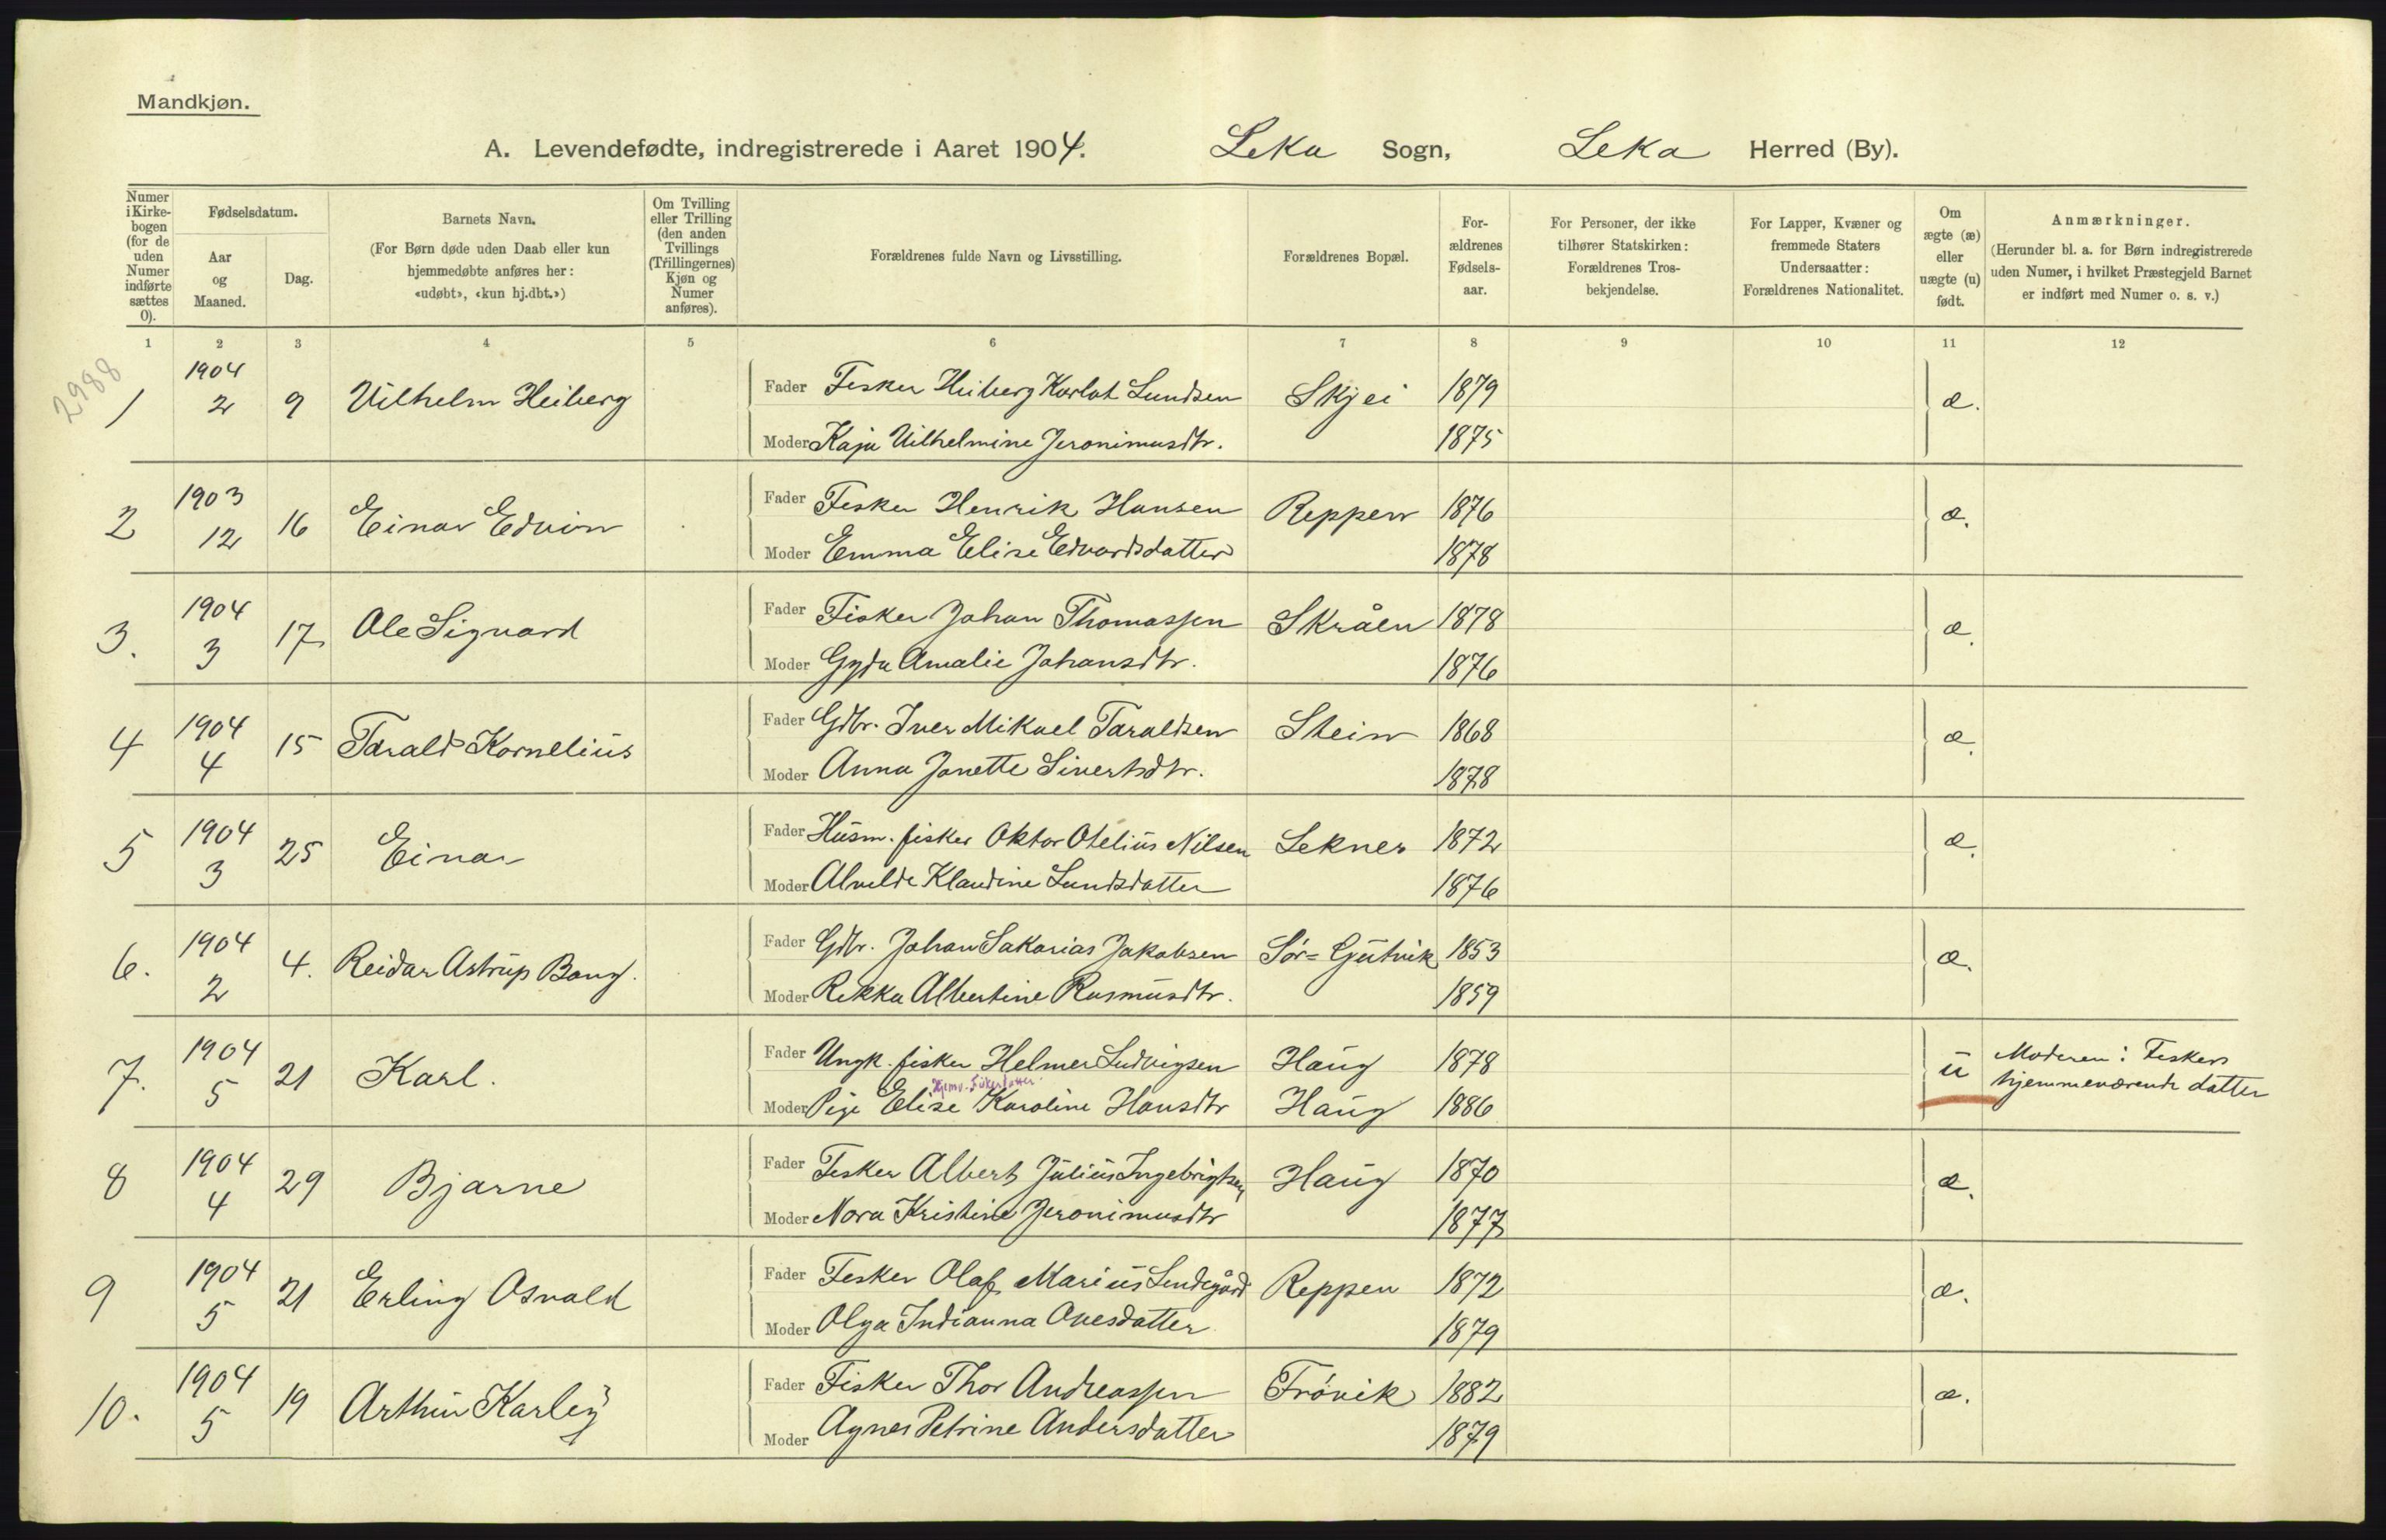 Mandkjøn.
A. Levendefødte, indregistrerede i Aaret 1904. Leka Sogn, Leka Herred (By).
Numer i Kirkebogen (for de uden Numer indførte sættes 0).
Fødselsdatum.
Aar og Maaned.
Dag.
Barnets Navn.
(For Børn døde uden Daab eller kun hjemmedøbte anføres her: «udøbt», «kun hj.dbt.»)
Om Tvilling eller Trilling (den anden Tvillings (Trillingernes) Kjøn og Numer anføres).
Forældrenes fulde Navn og Livsstilling.
Forældrenes Bopæl.
Forældrenes Fødselsaar.
For Personer, der ikke tilhører Statskirken: Forældrenes Trosbekjendelse.
For Lapper, Kvæner og fremmede Staters Undersaatter: Forældrenes Nationalitet.
Om ægte (æ) eller uægte (u) født.
Anmærkninger.
(Herunder bl. a. for Børn indregistrerede uden Numer, i hvilket Præstegjeld Barnet er indført med Numer o. s. v.)
1 2 3 4 5 6 7 8 9 10 11 12
2988
1 1904 2 9 Vilhelm Heiberg Fader Fisker Heiberg Karlot Lundsen Skjei 1879 æ.
Moder Kaja Vilhelmine Jeronimusdtr. 1875
2 1903 12 16 Einar Edvin Fader Fisker Henrik Hansen Reppen 1876 æ.
Moder Emma Elise Edvardsdatter 1878
3. 1904 3 17 Ole Sigvard Fader Fisker Johan Thomassen Skråen 1878 æ.
Moder Gyda Amalie Johansdtr. 1876
4 1904 4 15 Tarald Kornelius Fader Gdbr. Iver Mikael Taraldsen Stein 1868 æ.
Moder Anna Janette Sivertsdtr. 1878
5 1904 3 25 Einar Fader Husm. fisker Oktor Otelius Nilsen Lekner 1872 æ.
Moder Alvilde Klaudine Lundsdatter 1876
6. 1904 2 4. Reidar Astrup Bang. Fader Gdbr. Johan Sakarias Jakobsen Sør=Gutvik 1853 æ.
Moder Rikka Albertine Rasmusdtr. 1859
7. 1904 5 21 Karl. Fader Ungk. fisker Helmer Ludvigsen Haug 1878 u Moderen: Fiskers hjemmeværende datter
Moder Pige Elise Karoline Hansdtr Haug 1886
8 1904 4 29 Bjarne Fader Fisker Albert Julius Ingebrigtsen Haug 1870 æ.
Moder Nora Kristine Jeronimusdtr 1877
9 1904 5 21 Erling Osvald Fader Fisker Olaf Marius Lindegård Reppen 1872 æ.
Moder Olga Indianna Ovesdatter 1879
10. 1904 5 19 Arthur Karley Fader Fisker Thor Andreassen Frøvik 1882 æ.
Moder Agnes Petrine Andersdatter 1879